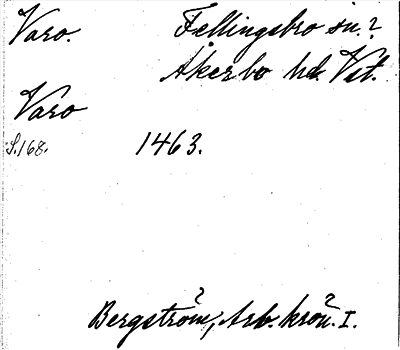 Varo. Fellingsbro sn.?
Åkerbo hd. Vst.
Varo
S.168. 1463.
Bergström, Arb. krön. I.